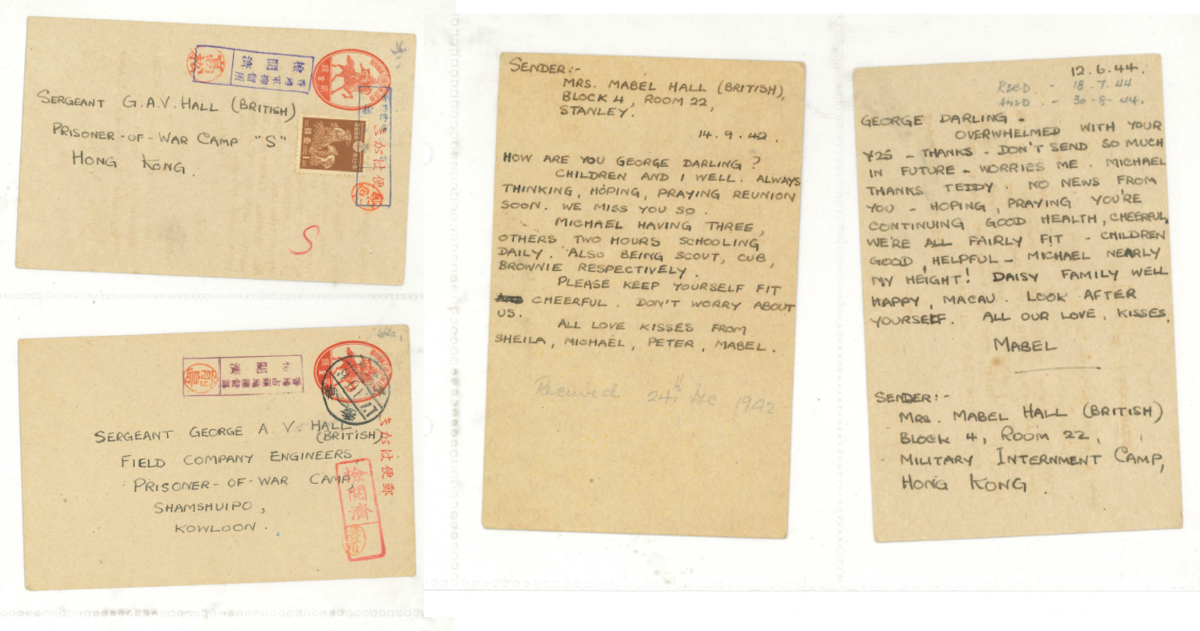 SERGEANT G.A.V. HALL (BRITISH)
PRISONER-OF-WAR CAMP "S"
HONG KONG.
S
郵便はがき
SERGEANT GEORGE A.V. HALL
(BRITISH)
FIELD COMPANY ENGINEERS
PRISONER-OF-WAR CAMP,
SHAMSHUIPO,
KOWLOON.
郵便はがき
検閲済
SENDER:-
MRS. MABEL HALL (BRITISH),
BLOCK 4, ROOM 22,
STANLEY.
14.9.42.
HOW ARE YOU GEORGE DARLING?
CHILDREN AND I WELL. ALWAYS
THINKING, HOPING, PRAYING REUNION
SOON. WE MISS YOU SO.
MICHAEL HAVING THREE,
OTHERS TWO HOURS SCHOOLING
DAILY. ALSO BEING SCOUT, CUB,
BROWNIE RESPECTIVELY.
PLEASE KEEP YOURSELF FIT
CHEERFUL. DON'T WORRY ABOUT
US.
ALL LOVE KISSES FROM
SHEILA, MICHAEL, PETER, MABEL.
Received 24th Dec 1942
12.6.44.
RECD. - 18.7.44
ANSD. - 30-8-44.
GEORGE DARLING -
OVERWHELMED WITH YOUR
¥25 - THANKS - DON'T SEND SO MUCH
IN FUTURE - WORRIES ME. MICHAEL
THANKS TEDDY. NO NEWS FROM
YOU - HOPING, PRAYING YOU'RE
CONTINUING GOOD HEALTH, CHEERFUL.
WE'RE ALL FAIRLY FIT - CHILDREN
GOOD, HELPFUL - MICHAEL NEARLY
MY HEIGHT! DAISY FAMILY WELL
HAPPY, MACAU. LOOK AFTER
YOURSELF. ALL OUR LOVE, KISSES,
MABEL
SENDER:-
MRS. MABEL HALL (BRITISH)
BLOCK 4, ROOM 22,
MILITARY INTERNMENT CAMP,
HONG KONG.